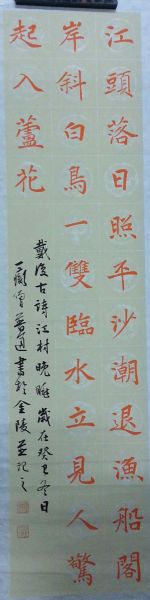 江頭落日照平沙潮退漁船閣
岸斜白鳥一雙臨水立見人驚
起入蘆花
戴復古詩江村晚眺歲在癸巳冬日
書於金陵並記之